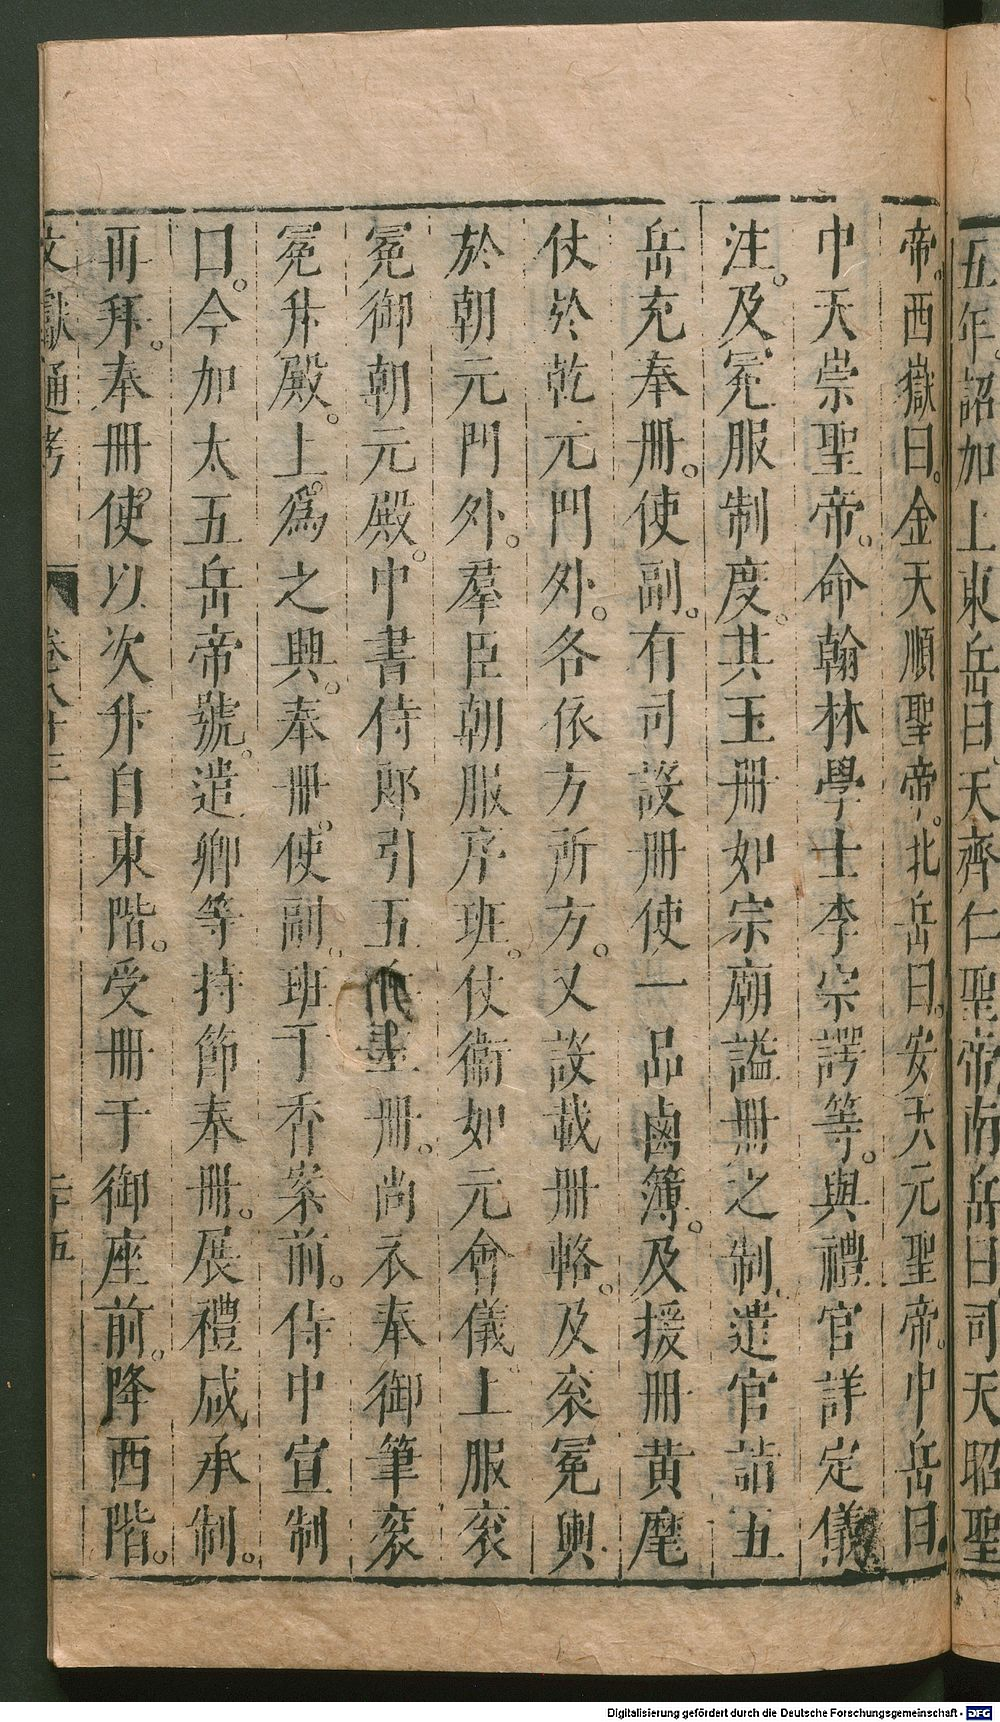 五年。詔加上東岳曰。天齊仁聖帝南岳曰司天昭聖
帝。西嶽曰。金天順聖帝。北岳曰。安天元聖帝。中岳曰。
中天崇聖帝。命翰林學士李宗諤等。與禮官詳定儀
注。及冕服制度。其玉册如宗廟謚册之制遣官詣五
岳充奉册。使副。有司設册使一品鹵簿。及援册黃麾
仗於乾元門外。各依方所方。又設載册輅。及衮冕輿
於朝元門外。羣臣朝服序班。仗衛如元會儀。上服衮
冕御朝元殿。中書侍郎引五 册。尚衣奉御筆衮
冕升殿。上。爲之興。奉册。使副。班于香案前。侍中宣制
曰。今加太五岳帝號。遣卿等持節奉册。展禮咸承制。
再拜。奉册使。以次升自東階。受册于御座前。降西階。
文獻通考 卷八十三 二十五
Digitalisierung gefördert durch die Deutsche Forschungsgemeinschaft - DFG